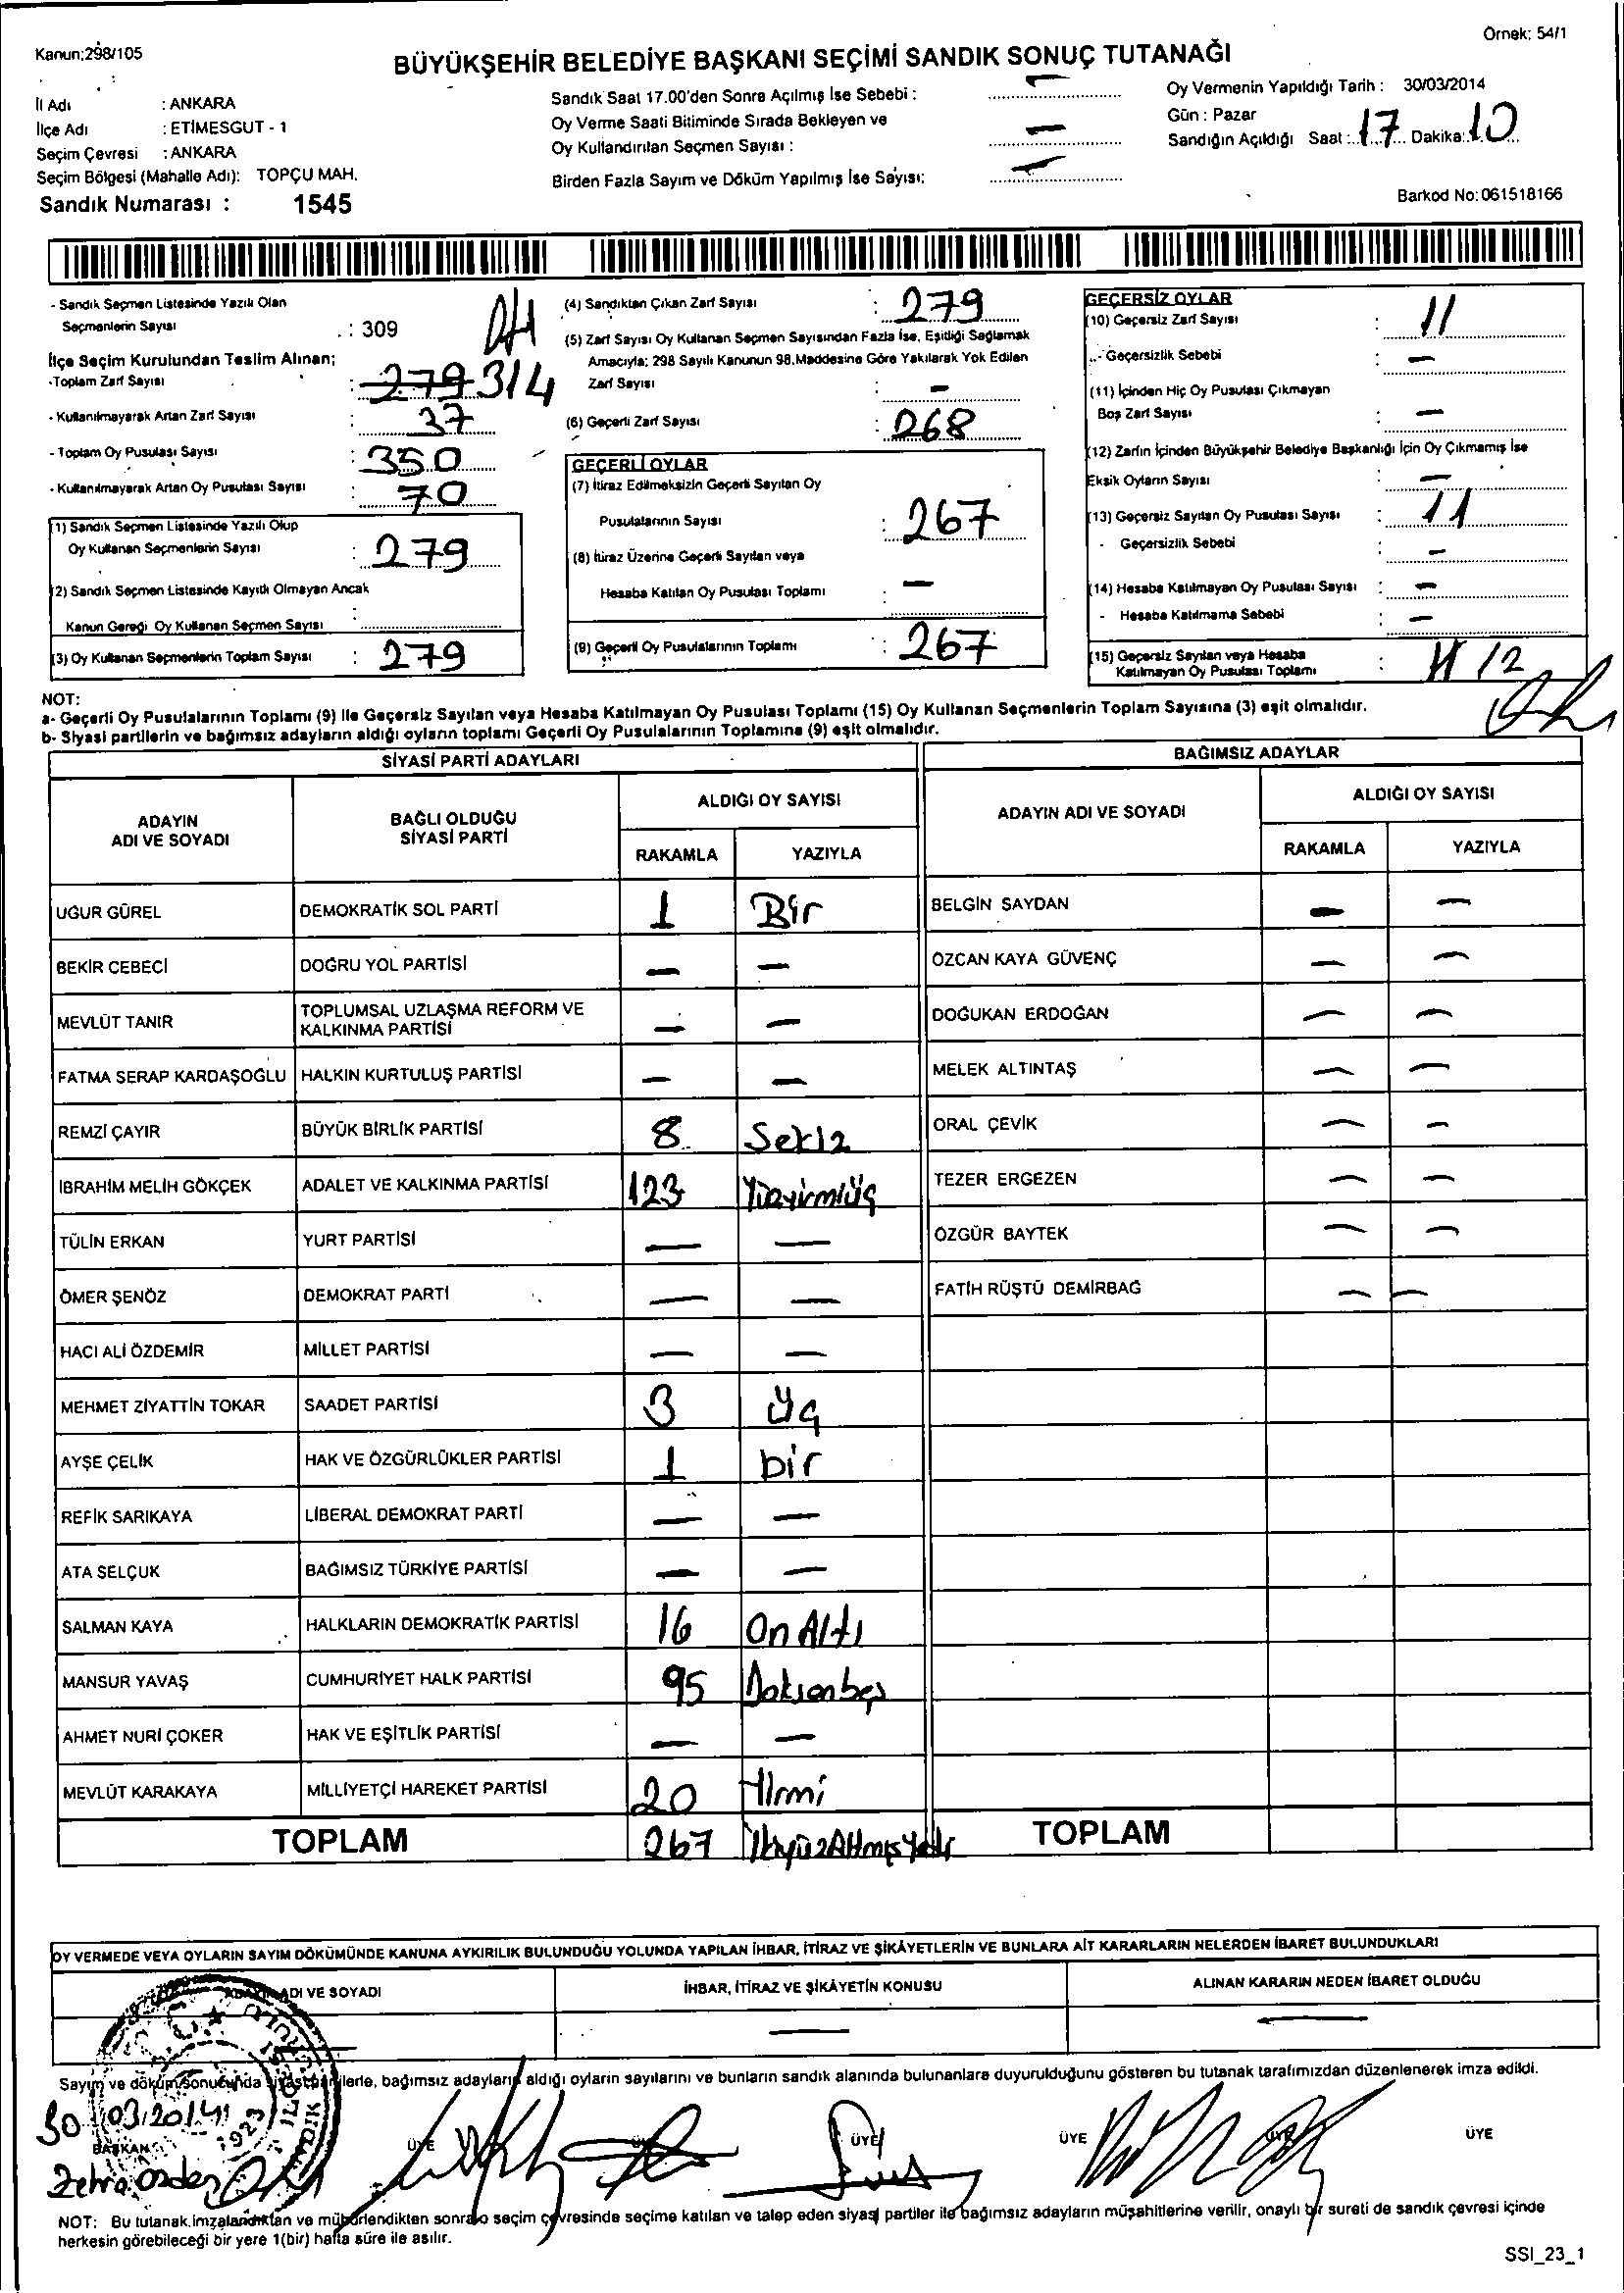 Kanun:298/105
Örnek: 54/1
BÜYÜKŞEHİR BELEDİYE BAŞKANI SEÇİMİ SANDIK SONUÇ TUTANAĞI
İl Adı : ANKARA
İlçe Adı : ETİMESGUT - 1
Seçim Çevresi : ANKARA
Seçim Bölgesi (Mahalle Adı): TOPÇU MAH.
Sandık Numarası : 1545
Sandık Saat 17.00'den Sonra Açılmış İse Sebebi : —
Oy Verme Saati Bitiminde Sırada Bekleyen ve
Oy Kullandırılan Seçmen Sayısı : —
Birden Fazla Sayım ve Döküm Yapılmış İse Sayısı: —
Oy Vermenin Yapıldığı Tarih : 30/03/2014
Gün : Pazar
Sandığın Açıldığı Saat : 17 Dakika: 10
Barkod No: 061518166
- Sandık Seçmen Listesinde Yazılı Olan
Seçmenlerin Sayısı : 309
İlçe Seçim Kurulundan Teslim Alınan;
-Toplam Zarf Sayısı : 279 314
- Kullanılmayarak Artan Zarf Sayısı : 37
- Toplam Oy Pusulası Sayısı : 350
- Kullanılmayarak Artan Oy Pusulası Sayısı : 70
(1) Sandık Seçmen Listesinde Yazılı Olup
Oy Kullanan Seçmenlerin Sayısı : 279
(2) Sandık Seçmen Listesinde Kayıtlı Olmayan Ancak
Kanun Gereği Oy Kullanan Seçmen Sayısı :
(3) Oy Kullanan Seçmenlerin Toplam Sayısı : 279
(4) Sandıktan Çıkan Zarf Sayısı : 279
(5) Zarf Sayısı Oy Kullanan Seçmen Sayısından Fazla İse, Eşitliği Sağlamak
Amacıyla; 298 Sayılı Kanunun 98.Maddesine Göre Yakılarak Yok Edilen
Zarf Sayısı : —
(6) Geçerli Zarf Sayısı : 268
GEÇERLİ OYLAR
(7) İtiraz Edilmeksizin Geçerli Sayılan Oy
Pusulalarının Sayısı : 267
(8) İtiraz Üzerine Geçerli Sayılan veya
Hesaba Katılan Oy Pusulası Toplamı : —
(9) Geçerli Oy Pusulalarının Toplamı : 267
GEÇERSİZ OYLAR
(10) Geçersiz Zarf Sayısı : 11
- Geçersizlik Sebebi : —
(11) İçinden Hiç Oy Pusulası Çıkmayan
Boş Zarf Sayısı : —
(12) Zarfın İçinden Büyükşehir Belediye Başkanlığı İçin Oy Çıkmamış İse
Eksik Oyların Sayısı : —
(13) Geçersiz Sayılan Oy Pusulası Sayısı : 11
- Geçersizlik Sebebi : —
(14) Hesaba Katılmayan Oy Pusulası Sayısı : —
- Hesaba Katılmama Sebebi : —
(15) Geçersiz Sayılan veya Hesaba
Katılmayan Oy Pusulası Toplamı : 11 12
NOT:
a- Geçerli Oy Pusulalarının Toplamı (9) İle Geçersiz Sayılan veya Hesaba Katılmayan Oy Pusulası Toplamı (15) Oy Kullanan Seçmenlerin Toplam Sayısına (3) eşit olmalıdır.
b- Siyasi partilerin ve bağımsız adayların aldığı oyların toplamı Geçerli Oy Pusulalarının Toplamına (9) eşit olmalıdır.
SİYASİ PARTİ ADAYLARI
ADAYIN ADI VE SOYADI BAĞLI OLDUĞU SİYASİ PARTİ ALDIĞI OY SAYISI
RAKAMLA YAZIYLA
UĞUR GÜREL DEMOKRATİK SOL PARTİ 1 Bir
BEKİR CEBECİ DOĞRU YOL PARTİSİ — —
MEVLÜT TANIR TOPLUMSAL UZLAŞMA REFORM VE KALKINMA PARTİSİ — —
FATMA SERAP KARDAŞOĞLU HALKIN KURTULUŞ PARTİSİ — —
REMZİ ÇAYIR BÜYÜK BİRLİK PARTİSİ 8 Sekiz
İBRAHİM MELİH GÖKÇEK ADALET VE KALKINMA PARTİSİ 123 Yüzyirmiüç
TÜLİN ERKAN YURT PARTİSİ — —
ÖMER ŞENÖZ DEMOKRAT PARTİ — —
HACI ALİ ÖZDEMİR MİLLET PARTİSİ — —
MEHMET ZİYATTİN TOKAR SAADET PARTİSİ 3 Üç
AYŞE ÇELİK HAK VE ÖZGÜRLÜKLER PARTİSİ 1 bir
REFİK SARIKAYA LİBERAL DEMOKRAT PARTİ — —
ATA SELÇUK BAĞIMSIZ TÜRKİYE PARTİSİ — —
SALMAN KAYA HALKLARIN DEMOKRATİK PARTİSİ 16 On Altı
MANSUR YAVAŞ CUMHURİYET HALK PARTİSİ 95 Doksanbeş
AHMET NURİ ÇOKER HAK VE EŞİTLİK PARTİSİ — —
MEVLÜT KARAKAYA MİLLİYETÇİ HAREKET PARTİSİ 20 Yirmi
TOPLAM 267 İkiyüzAltmışYedi
BAĞIMSIZ ADAYLAR
ADAYIN ADI VE SOYADI ALDIĞI OY SAYISI
RAKAMLA YAZIYLA
BELGİN SAYDAN — —
ÖZCAN KAYA GÜVENÇ — —
DOĞUKAN ERDOĞAN — —
MELEK ALTINTAŞ — —
ORAL ÇEVİK — —
TEZER ERGEZEN — —
ÖZGÜR BAYTEK — —
FATİH RÜŞTÜ DEMİRBAĞ — —
TOPLAM
OY VERMEDE VEYA OYLARIN SAYIM DÖKÜMÜNDE KANUNA AYKIRILIK BULUNDUĞU YOLUNDA YAPILAN İHBAR, İTİRAZ VE ŞİKÂYETLERİN VE BUNLARA AİT KARARLARIN NELERDEN İBARET BULUNDUKLARI
ADI VE SOYADI İHBAR, İTİRAZ VE ŞİKÂYETİN KONUSU ALINAN KARARIN NEDEN İBARET OLDUĞU
— — —
Sayım ve döküm sonucunda siyasi partilerle, bağımsız adayların aldığı oyların sayılarını ve bunların sandık alanında bulunanlara duyurulduğunu gösteren bu tutanak tarafımızdan düzenlenerek imza edildi.
30/03/2014
BAŞKAN ÜYE ÜYE ÜYE ÜYE ÜYE ÜYE
Zehra Özden
1923
NOT: Bu tutanak imzalandıktan ve mühürlendikten sonra o seçim çevresinde seçime katılan ve talep eden siyasi partiler ile bağımsız adayların müşahitlerine verilir, onaylı bir sureti de sandık çevresi içinde
herkesin görebileceği bir yere 1(bir) hafta süre ile asılır.
SSI_23_1